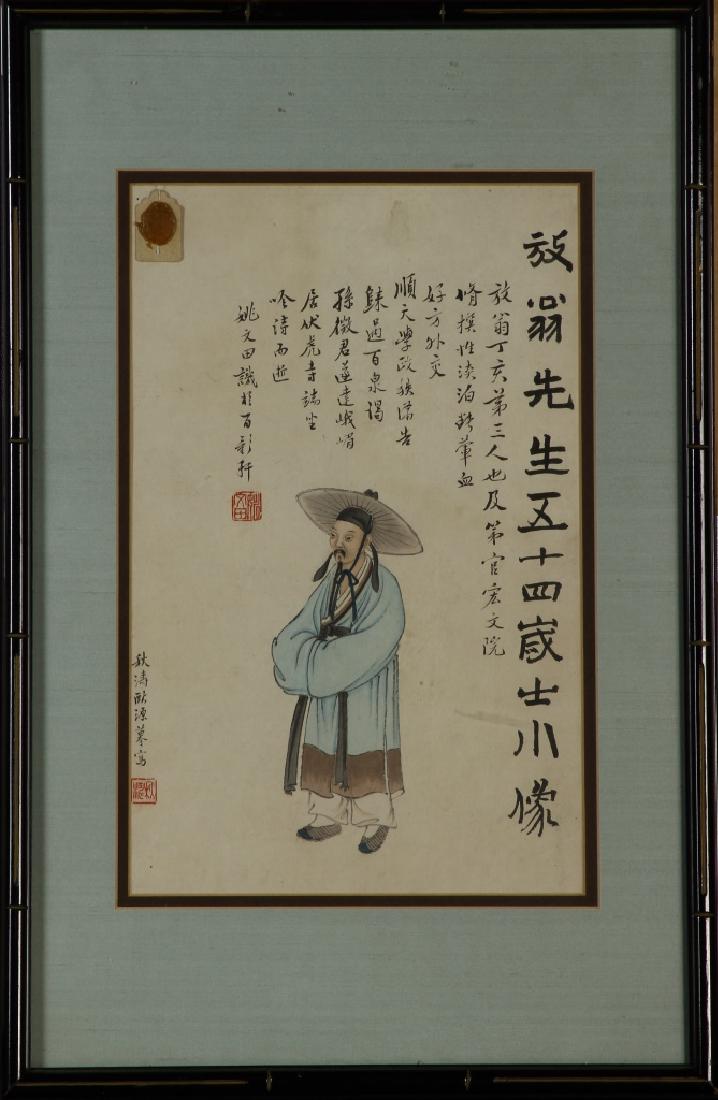 放翁先生五十四歲士小像
放翁丁亥第三人也及第官宏文院
脩撰性淡泊 葷血
好方外交
順天學政秩滿告
歸過百泉謁
孫徵君 達峨嵋
居伏虎寺端坐
吟詩而逝
姚文田識於百彩軒
姚文田
秋濤 源摹寫